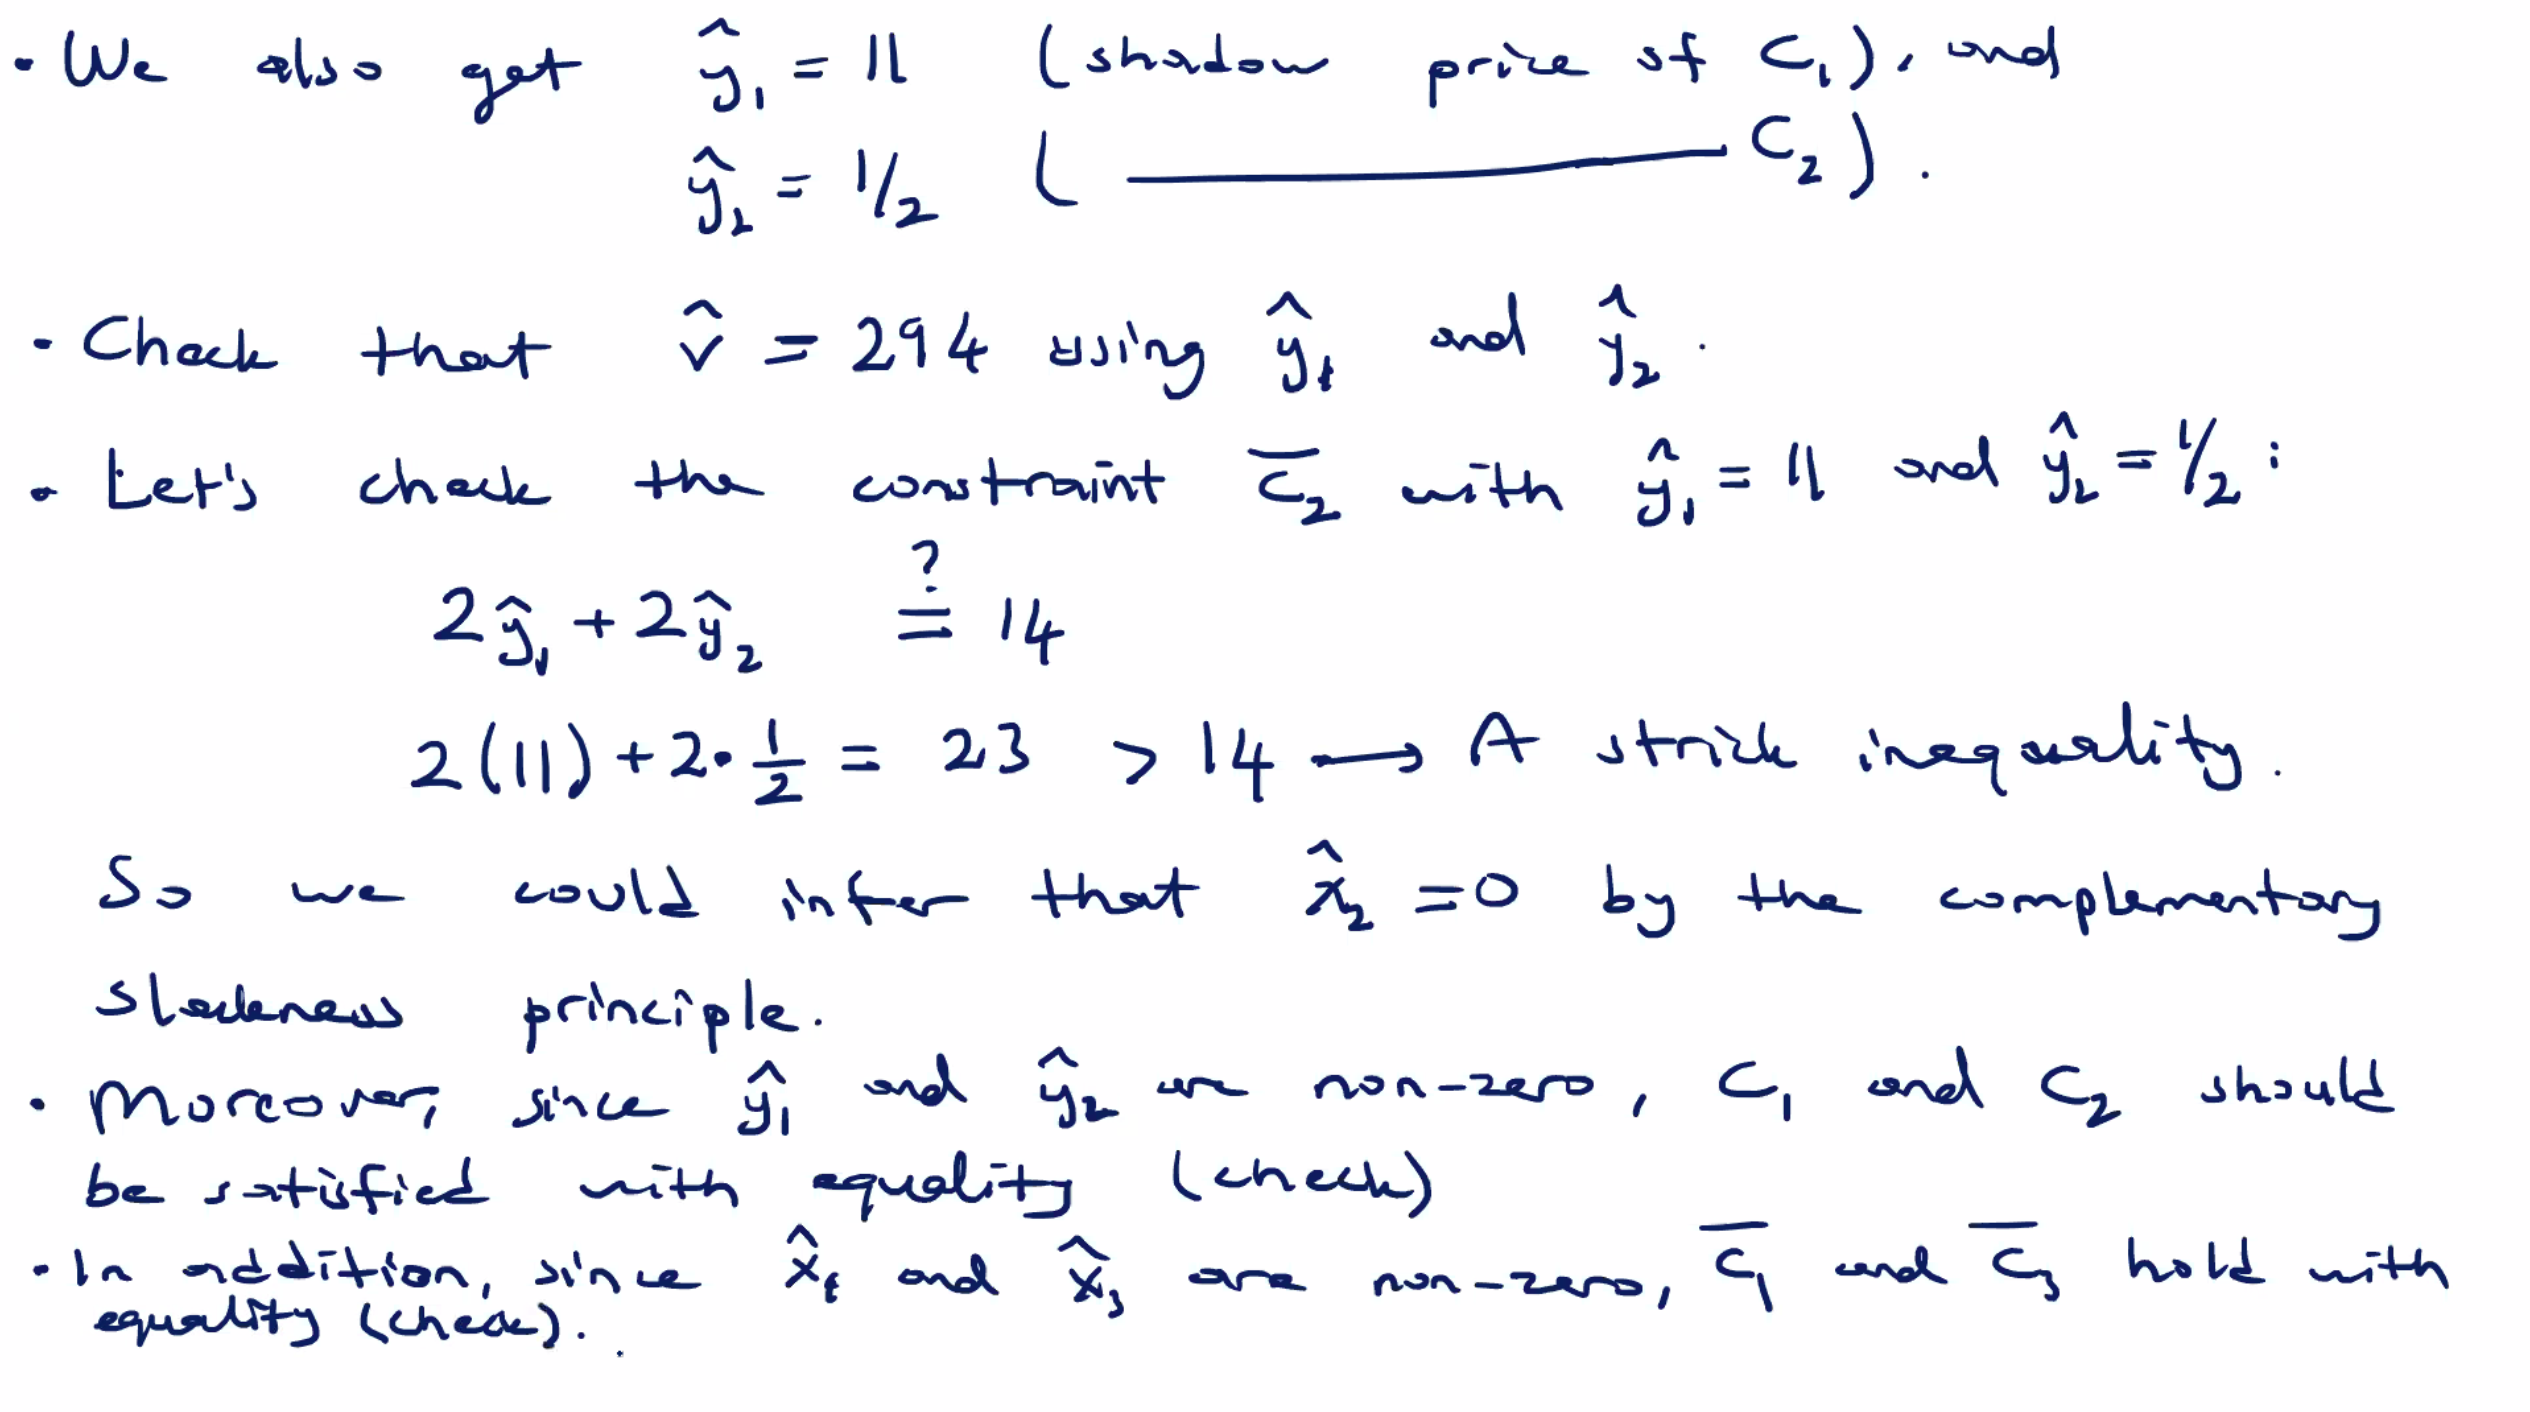 • We also get ŷ₁ = 11 (shadow price of C₁), and
ŷ₂ = 1/2 (———— C₂).
• Check that v̂ = 294 using ŷ₁ and ŷ₂.
• Let's check the constraint C̅₂ with ŷ₁ = 11 and ŷ₂ = 1/2 :
2ŷ₁ + 2ŷ₂ ≟ 14
2(11) + 2·1/2 = 23 > 14 → A strict inequality.
So we could infer that x̂₂ = 0 by the complementary
slackness principle.
• Moreover, since ŷ₁ and ŷ₂ are non-zero, C₁ and C₂ should
be satisfied with equality (check)
• In addition, since x̂₁ and x̂₃ are non-zero, C̅₁ and C̅₃ hold with
equality (check).